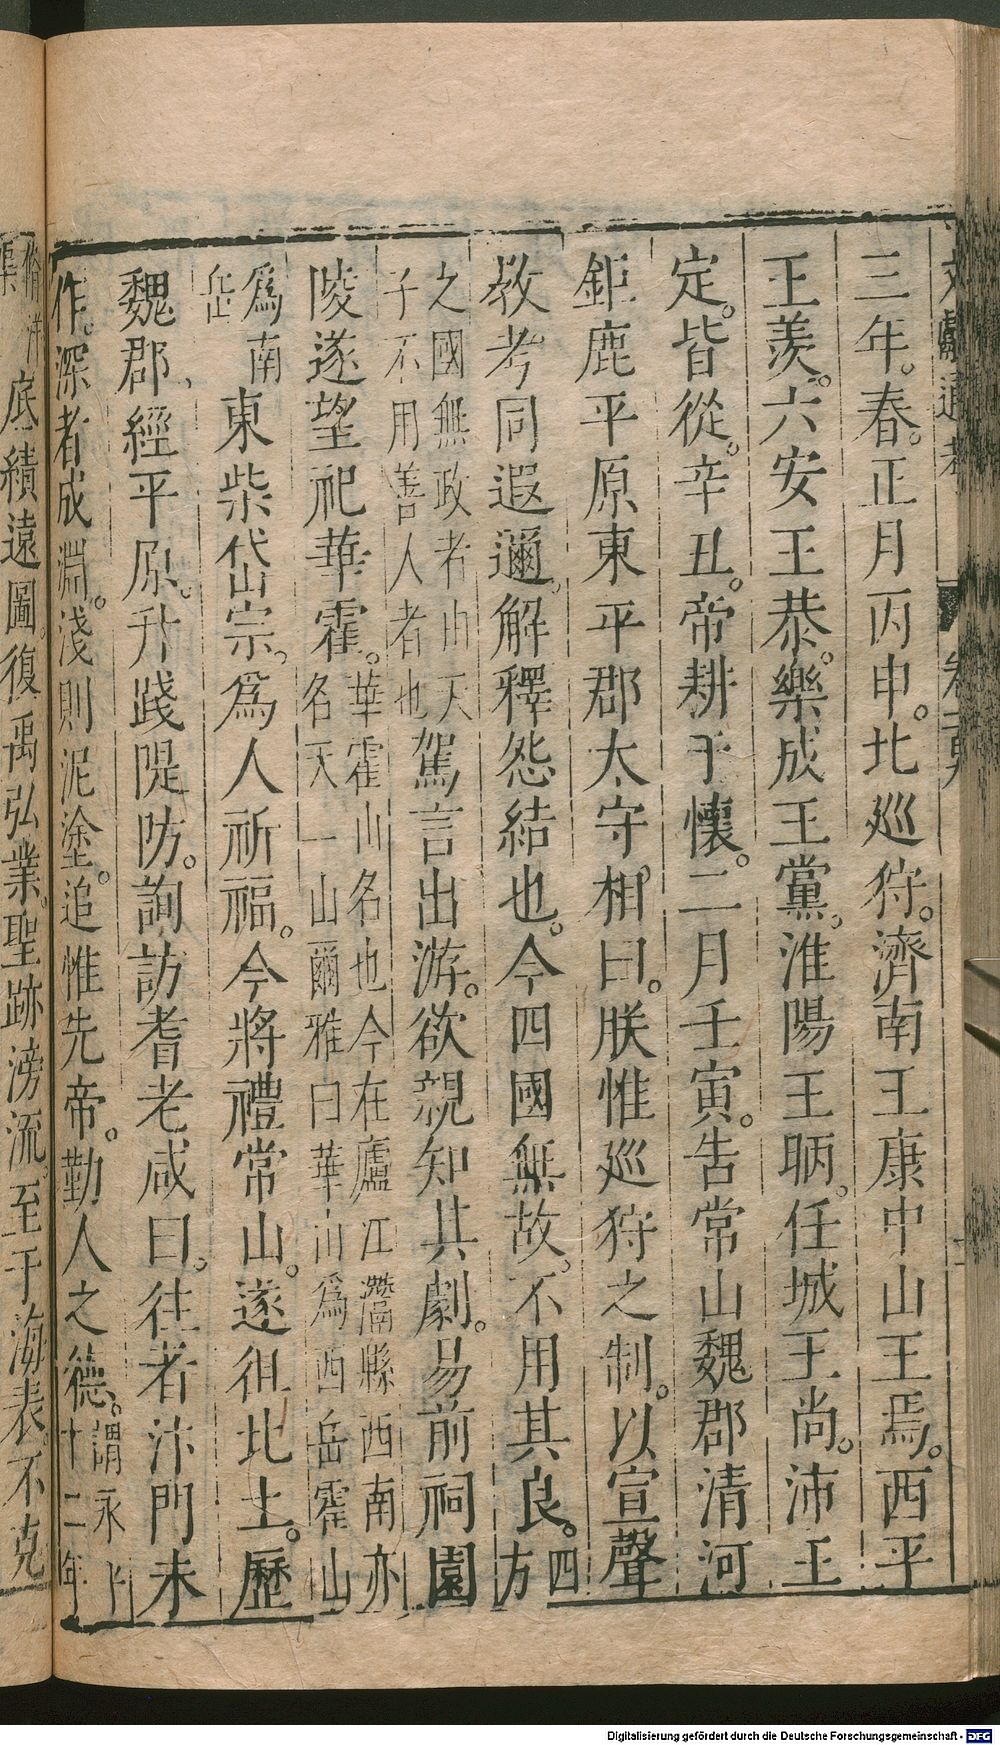 三年。春。正月丙申。北巡狩。濟南王康中山王焉。西平
王羨。六安王恭。樂成王黨。淮陽王昞。任城王尚。沛王
定。皆從。辛丑。帝耕于懷。二月壬寅。告常山魏郡清河
鉅鹿平原東平郡太守相曰。朕惟巡狩之制。以宣聲
教考同遐邇。解釋怨結也。今四國無故。不用其良。四方
之國無政者由天
子不用善人者也
駕言出游。欲親知其劇。易前祠園
陵遂望祀華霍。華霍山名也今在廬江灊縣西南亦
名天一山爾雅曰華山爲西岳霍山
爲南
岳
東柴岱宗。爲人祈福。今將禮常山。遂徂北土。歷
魏郡、經平原。升踐隄防。詢訪耆老咸曰。往者汴門未
作。深者成淵。淺則泥塗。追惟先帝。勤人之德。謂永上
十二年
底績遠圖。復禹弘業。聖跡滂流。至于海表。不克